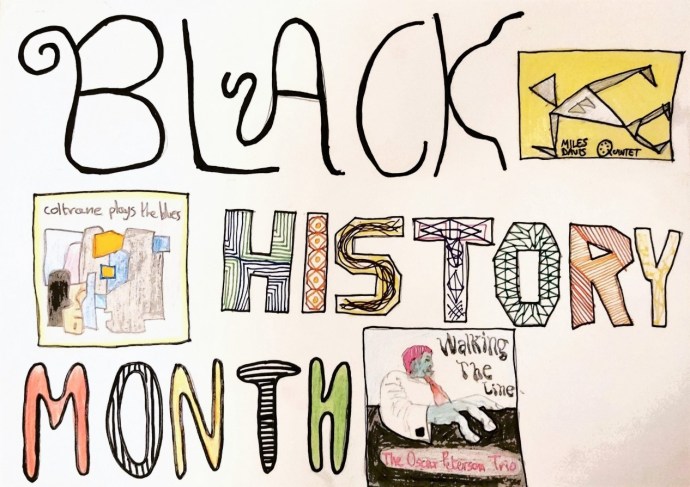 BLACK
MILES
DAVIS QUINTET
coltrane plays the blues
HISTORY
MONTH
Walking
The
Line
The Oscar Peterson Trio